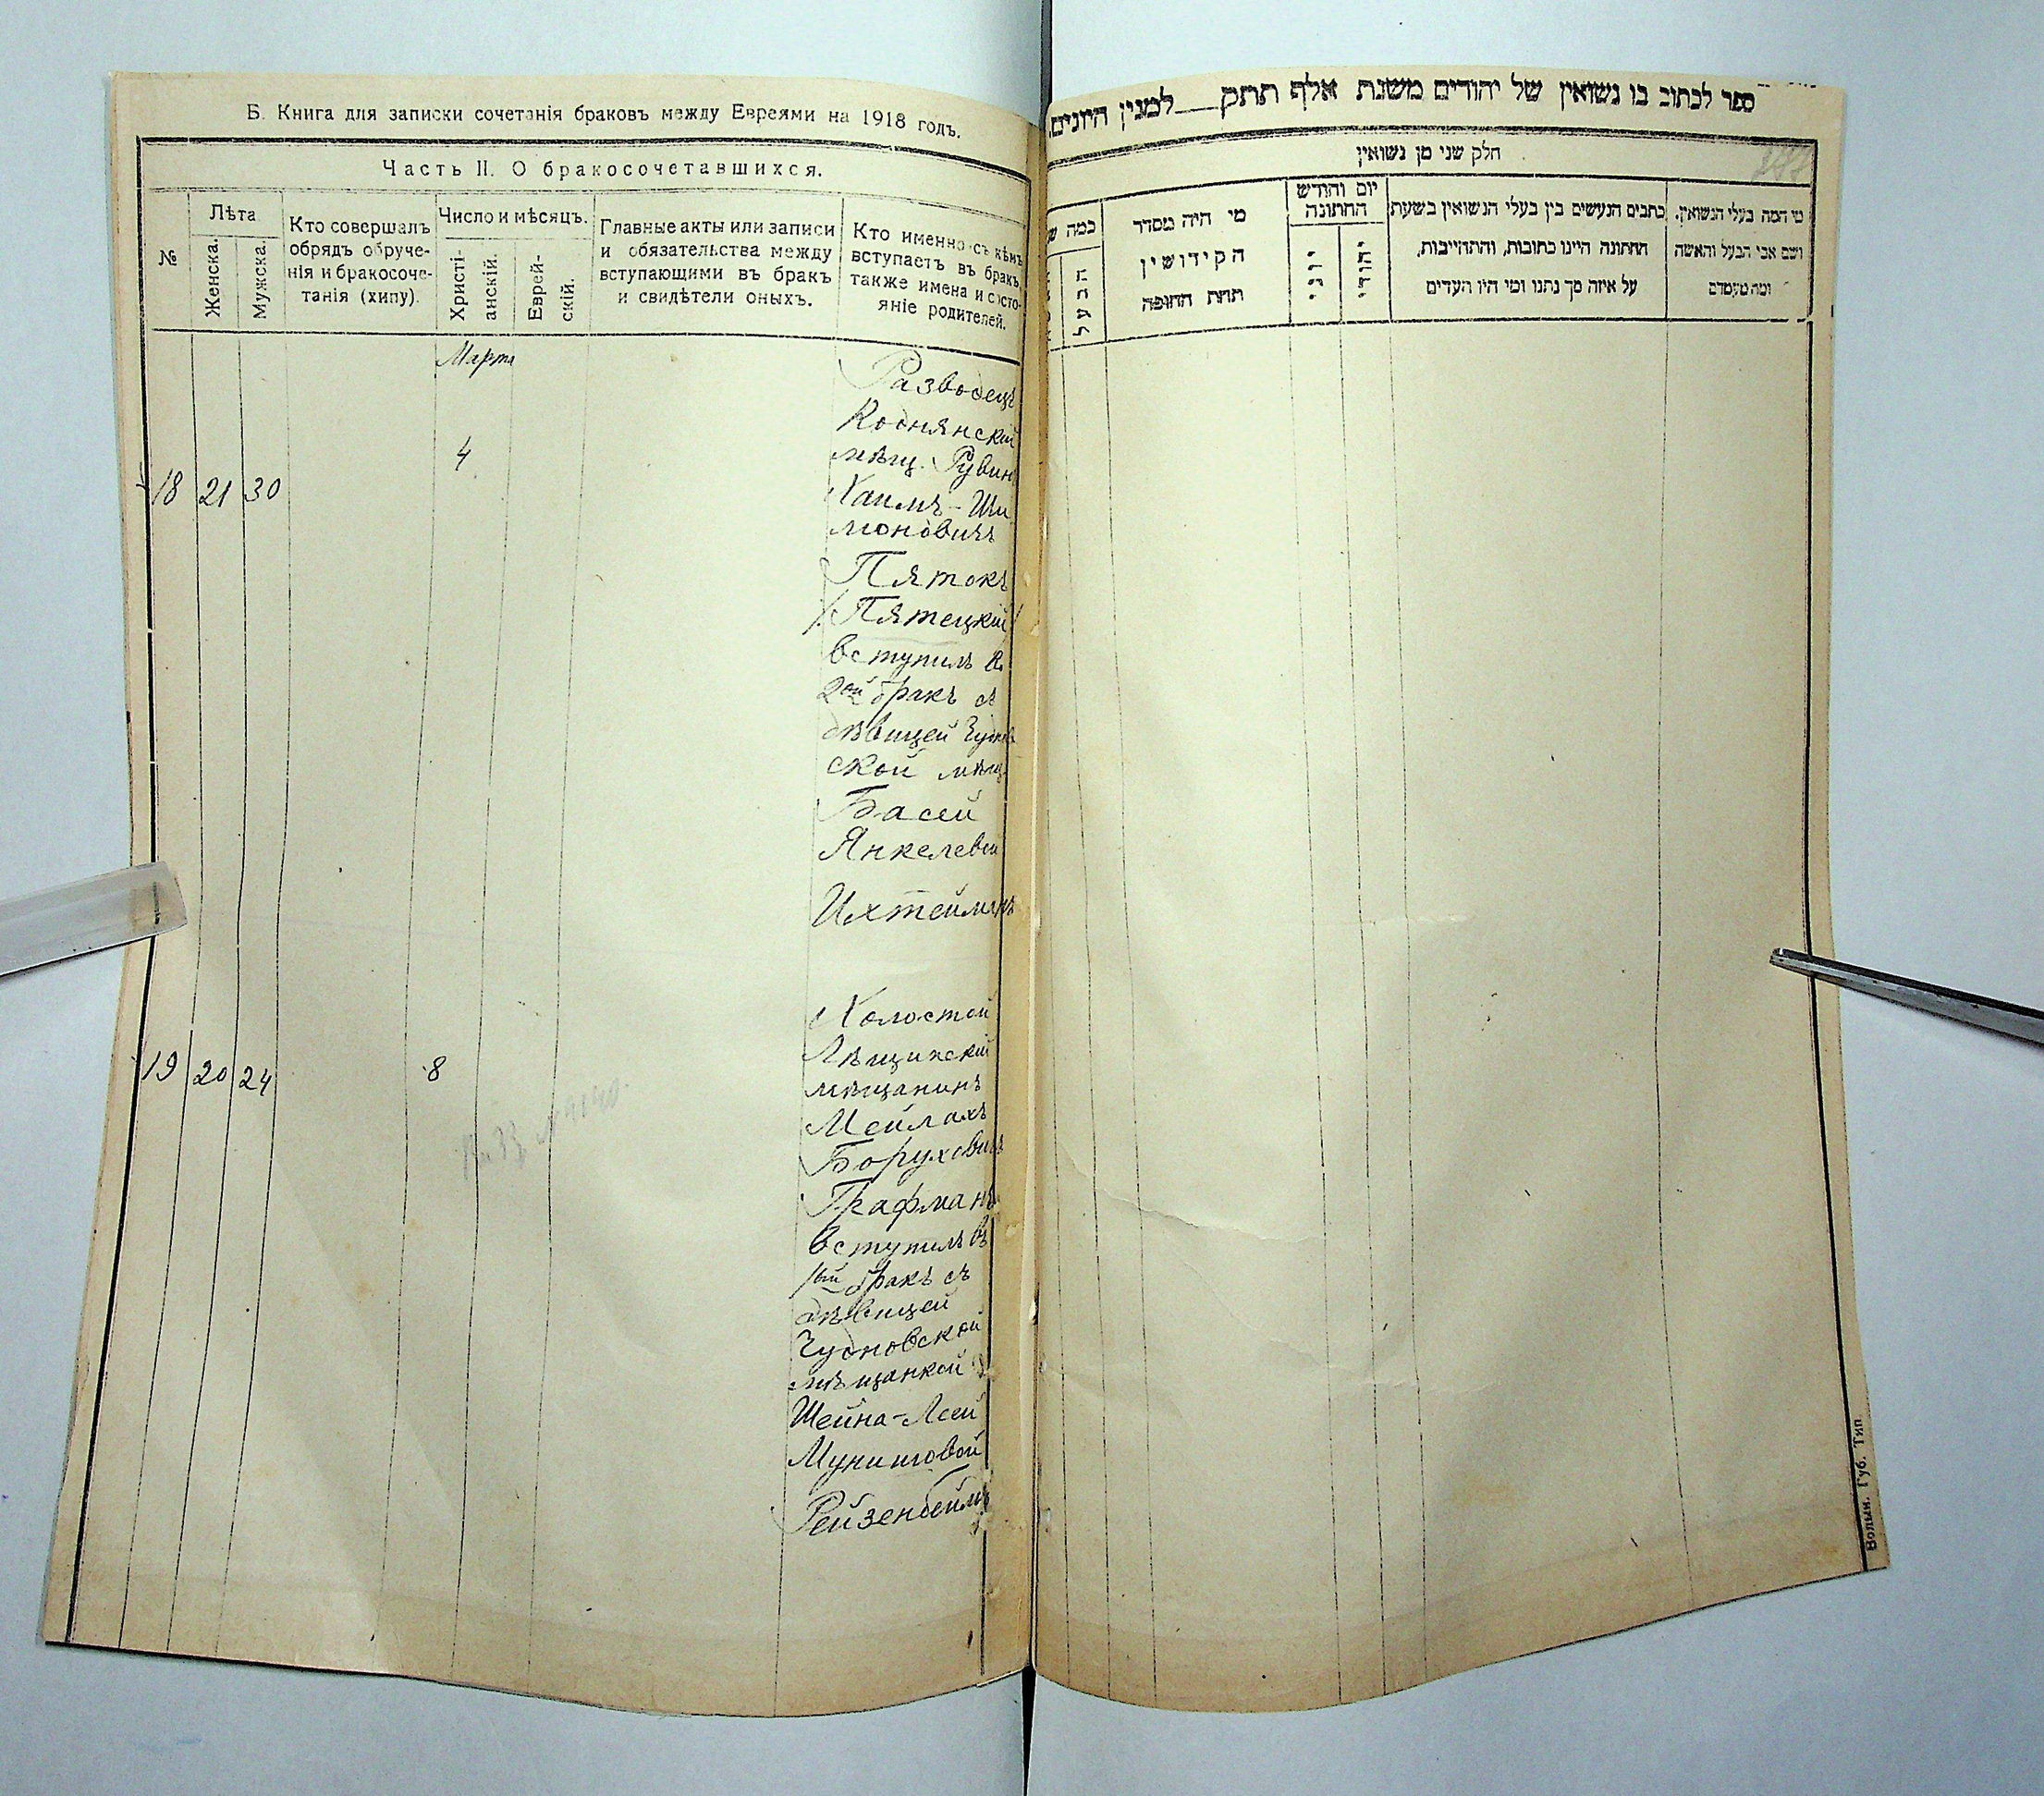 Б. Книга для записки сочетанія браковъ между Евреями на 1918 годъ.
Часть II. О бракосочетавшихся.
№
Лѣта
Женска.
Мужска.
Кто совершалъ
обрядъ обруче-
нія и бракосоче-
танія (хипу).
Число и мѣсяцъ.
Христі-
анскій.
Еврей-
скій.
Главные акты или записи
и обязательства между
вступающими въ бракъ
и свидѣтели оныхъ.
Кто именно съ кѣмъ
вступаетъ въ бракъ,
также имена и состо-
яніе родителей.
Марта
18 21 30
4
Разводецъ
Коднянскій
мѣщ. Рувин
Хаимъ-Ши
моновичъ
Пятокъ
/Пятецкій/
вступилъ в
2ой бракъ съ
дѣвицей Чуднов
ской мѣщ
Басей
Янкелевой
Ихтейманъ
19 20 24
8
Холостой
Лѣщинскій
мѣщанинъ
Мейлахъ
Боруховичъ
Графманъ
вступилъ въ
1ый бракъ съ
дѣвицей
Чудновской
мѣщанкой
Шейна-Леей
Мунишовой
Рейзенбеймъ
ספר לכתוב בו נשואין של יהודים משנת אלף תתק__למנין היונים
חלק שני מן נשואין
מי המה בעלי הנשואין.
ושם אבי הבעל והאשה
ומה מעמדם
כתבים הנעשים בין בעלי הנשואין בשעת
החתונה היינו כתובות, והתחייבות,
על איזה סך נתנו ומי היו העדים
יום וחודש
החתונה
יהודי
יוני
מי היה מסדר
הקידושין
תחת החופה
כמה ש
הבעל
Волын. Губ. Тип.